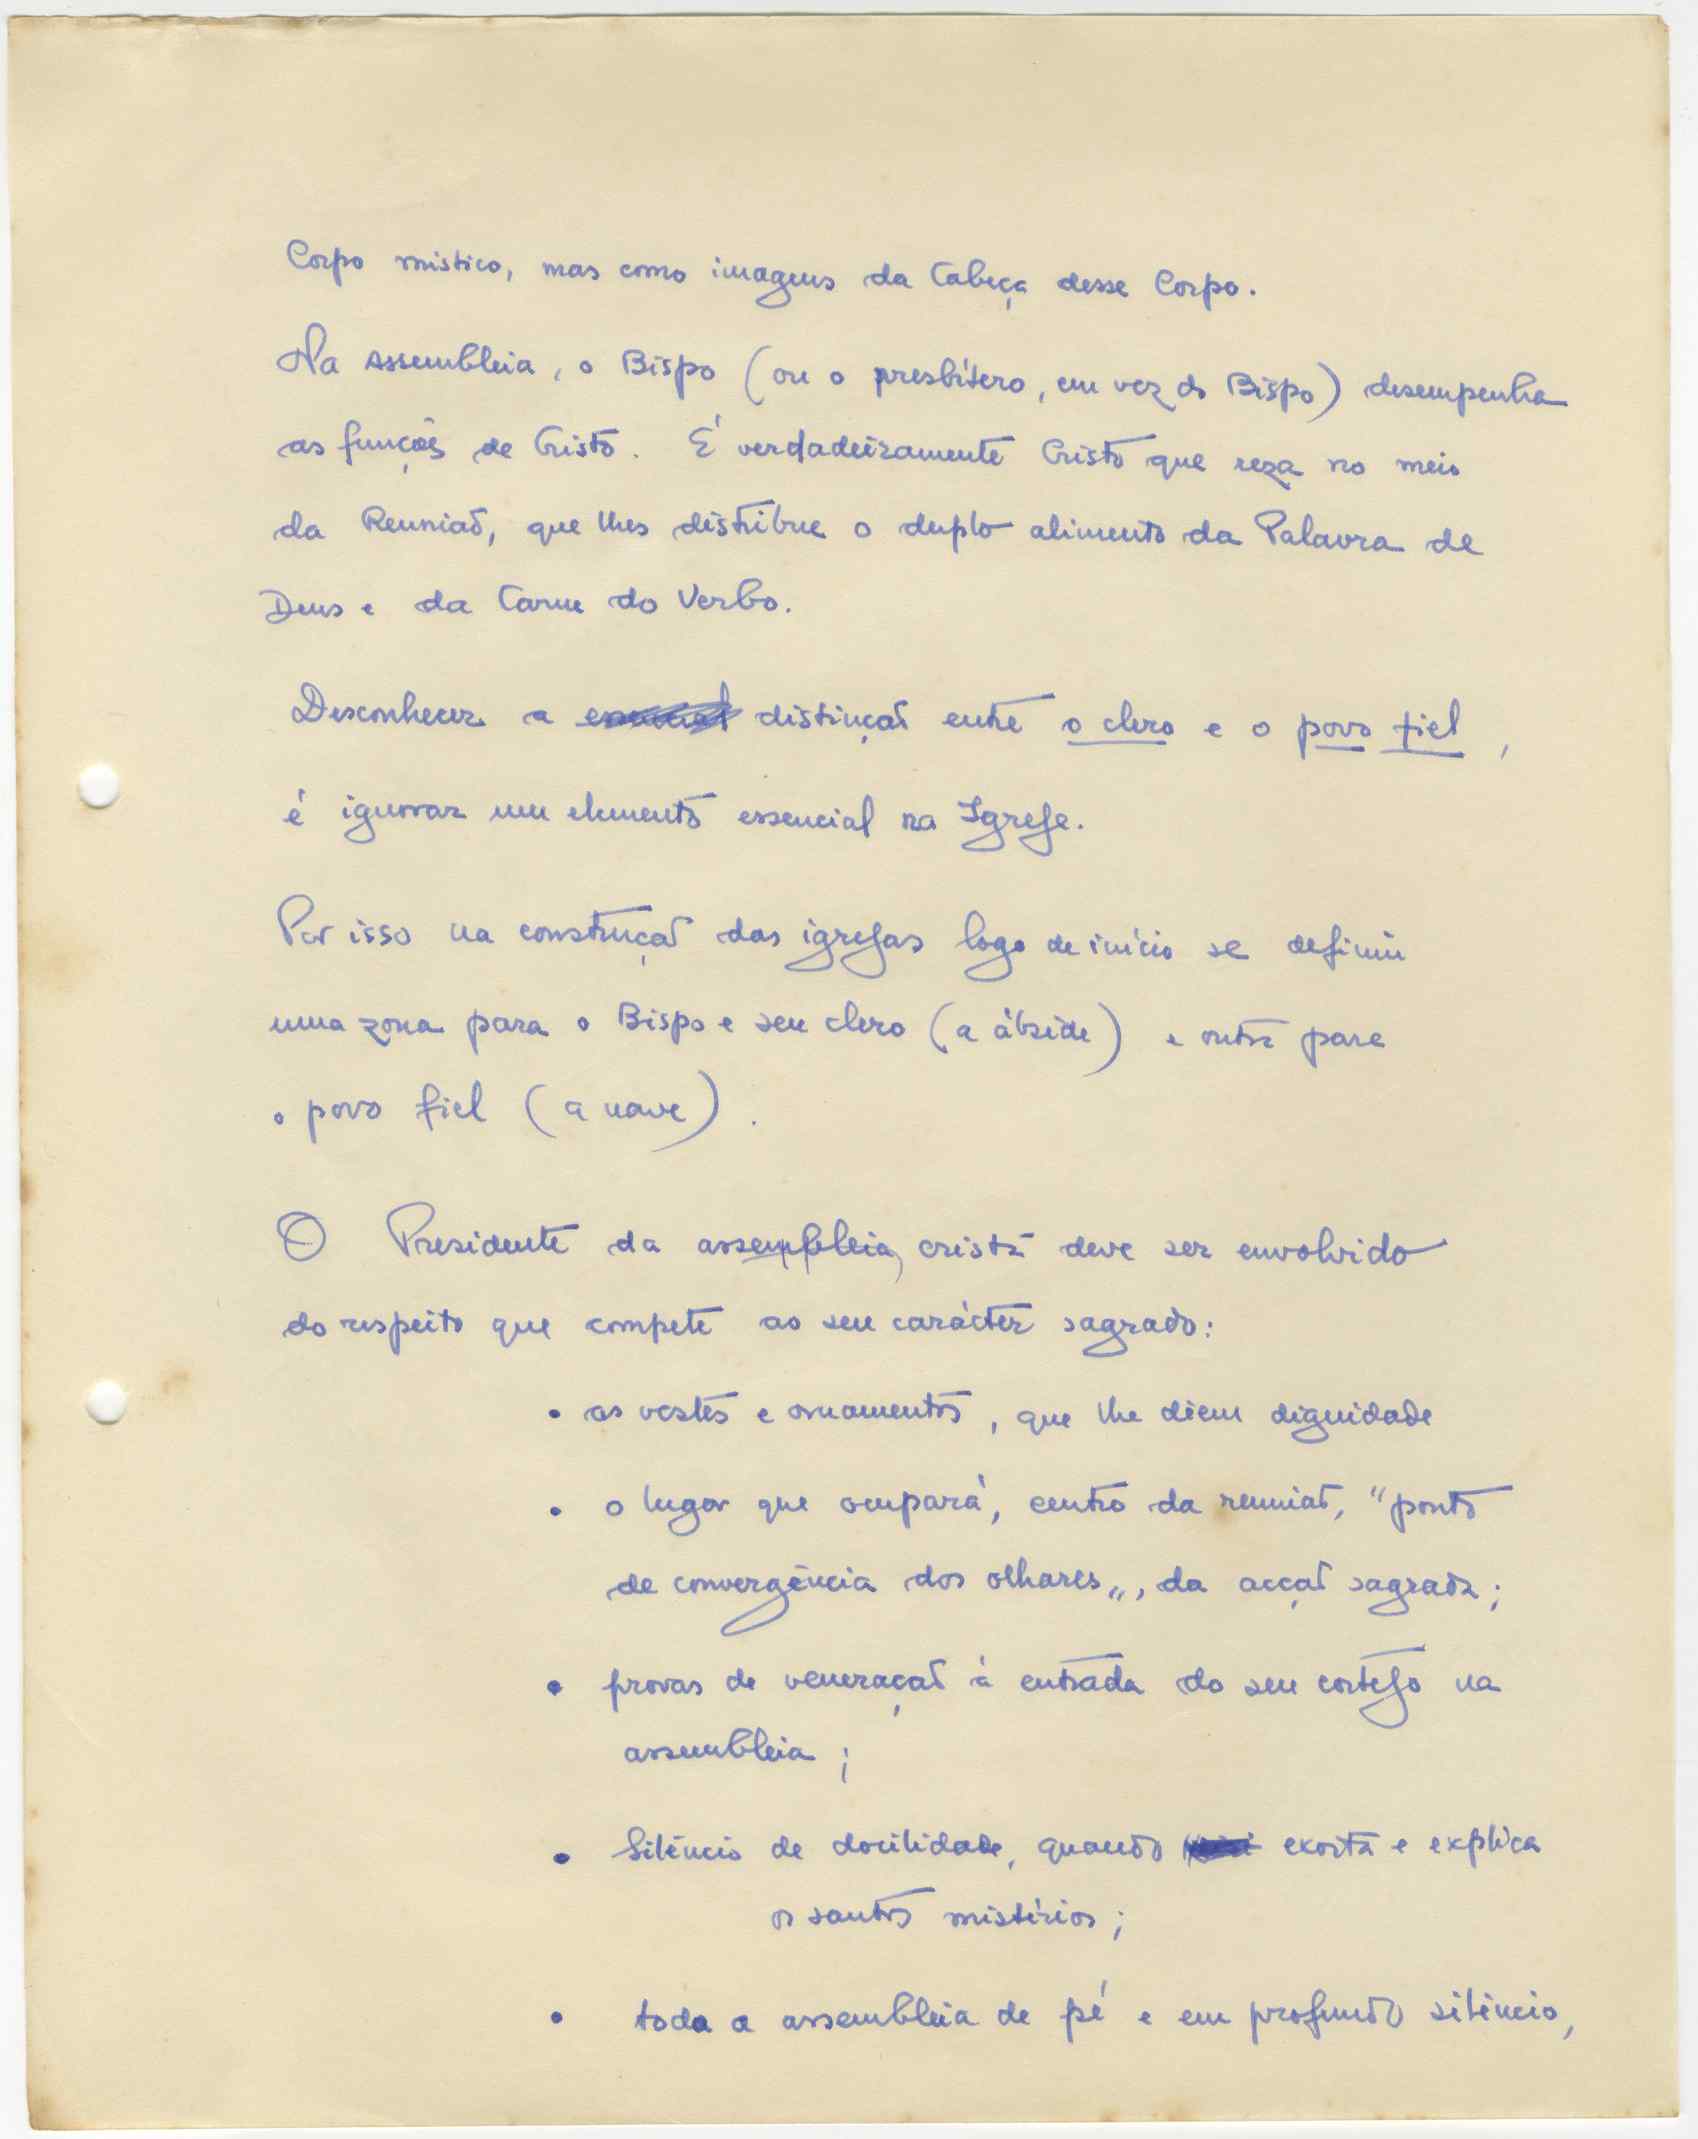 Corpo mistico, mas como imagens da Cabeça desse Corpo.
Na Assembleia, o Bispo (ou o presbítero, em vez do Bispo) desempenha
as funções de Cristo. É verdadeiramente Cristo que reza no meio
da Reunião, que lhes distribue o duplo alimento da Palavra de
Deus e da Carne do Verbo.
Desconhecer a essencial distinção entre o clero e o povo fiel,
é ignorar um elemento essencial na Igreja.
Por isso na construção das igrejas logo de início se definiu
uma zona para o Bispo e seu clero (a ábside) e outra para
o povo fiel (a nave).
O Presidente da assembleia cristã deve ser envolvido
do respeito que compete ao seu carácter sagrado:
• as vestes e ornamentos, que lhe diem dignidade
• o lugar que ocupará, centro da reunião, "ponto
de convergência dos olhares", da acção sagrada;
• provas de veneração à entrada do seu cortejo na
assembleia;
• Silêncio de docilidade, quando exorta e explica
os santos mistérios;
• toda a assembleia de pé e em profundo silêncio,